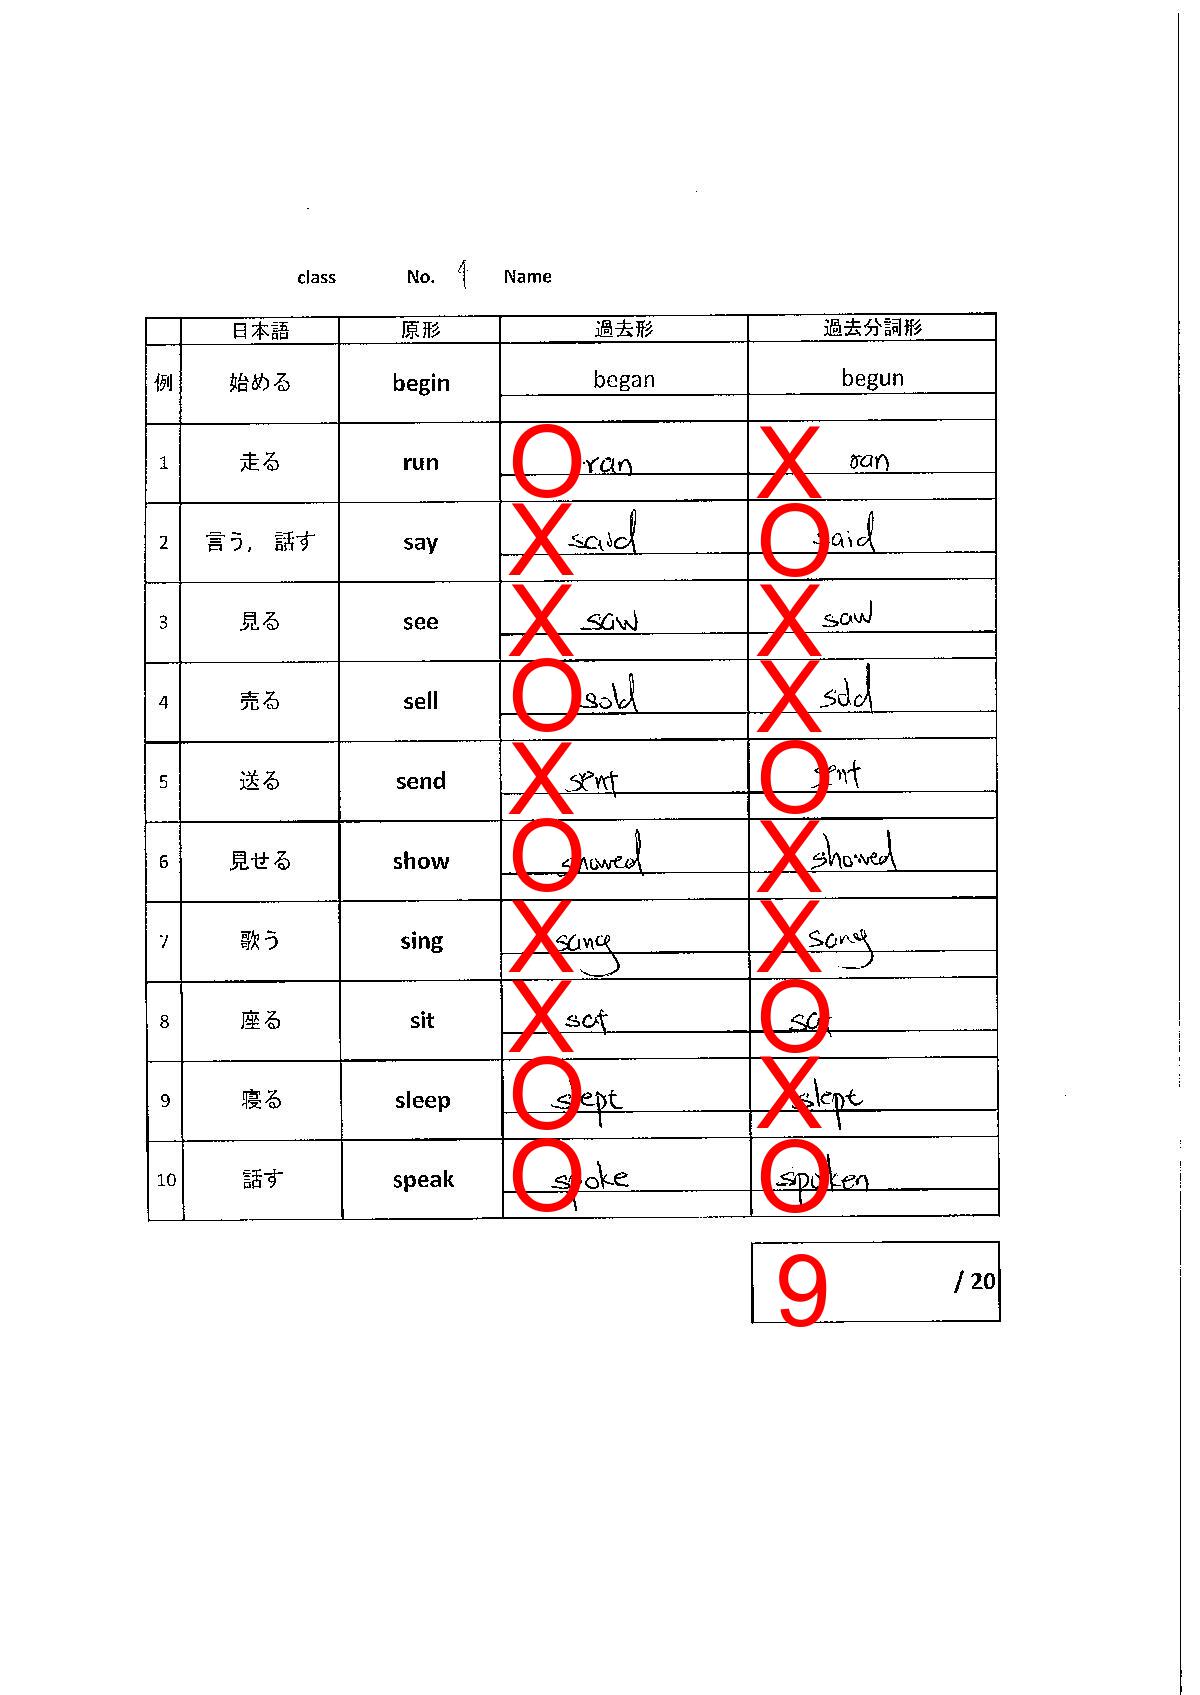 class No. 9 Name
日本語 原形 過去形 過去分詞形
例 始める begin began begun
1 走る run O ran X ran
2 言う, 話す say X said O said
3 見る see X saw X saw
4 売る sell O sold X sold
5 送る send X sent O sent
6 見せる show O showed X showed
7 歌う sing X sang X sang
8 座る sit X sat O sat
9 寝る sleep O slept X slept
10 話す speak O spoke O spoken
9 / 20